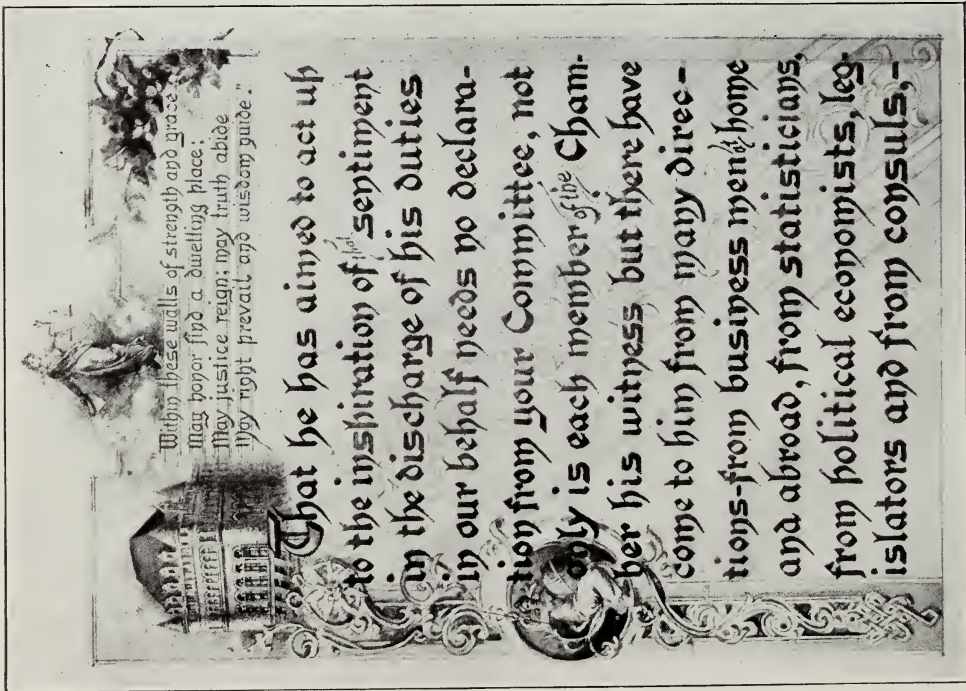 Within these walls of strength and grace
May honor find a dwelling place;
May justice reign; may truth abide
May right prevail and wisdom guide."
That he has aimed to act up
to the inspiration of that sentiment
in the discharge of his duties
in our behalf needs no declara-
tion from your Committee, not
only is each member of the Cham-
ber his witness but there have
come to him from many direc-
tions-from business men at home
and abroad, from statisticians,
from political economists, leg-
islators and from consuls,-